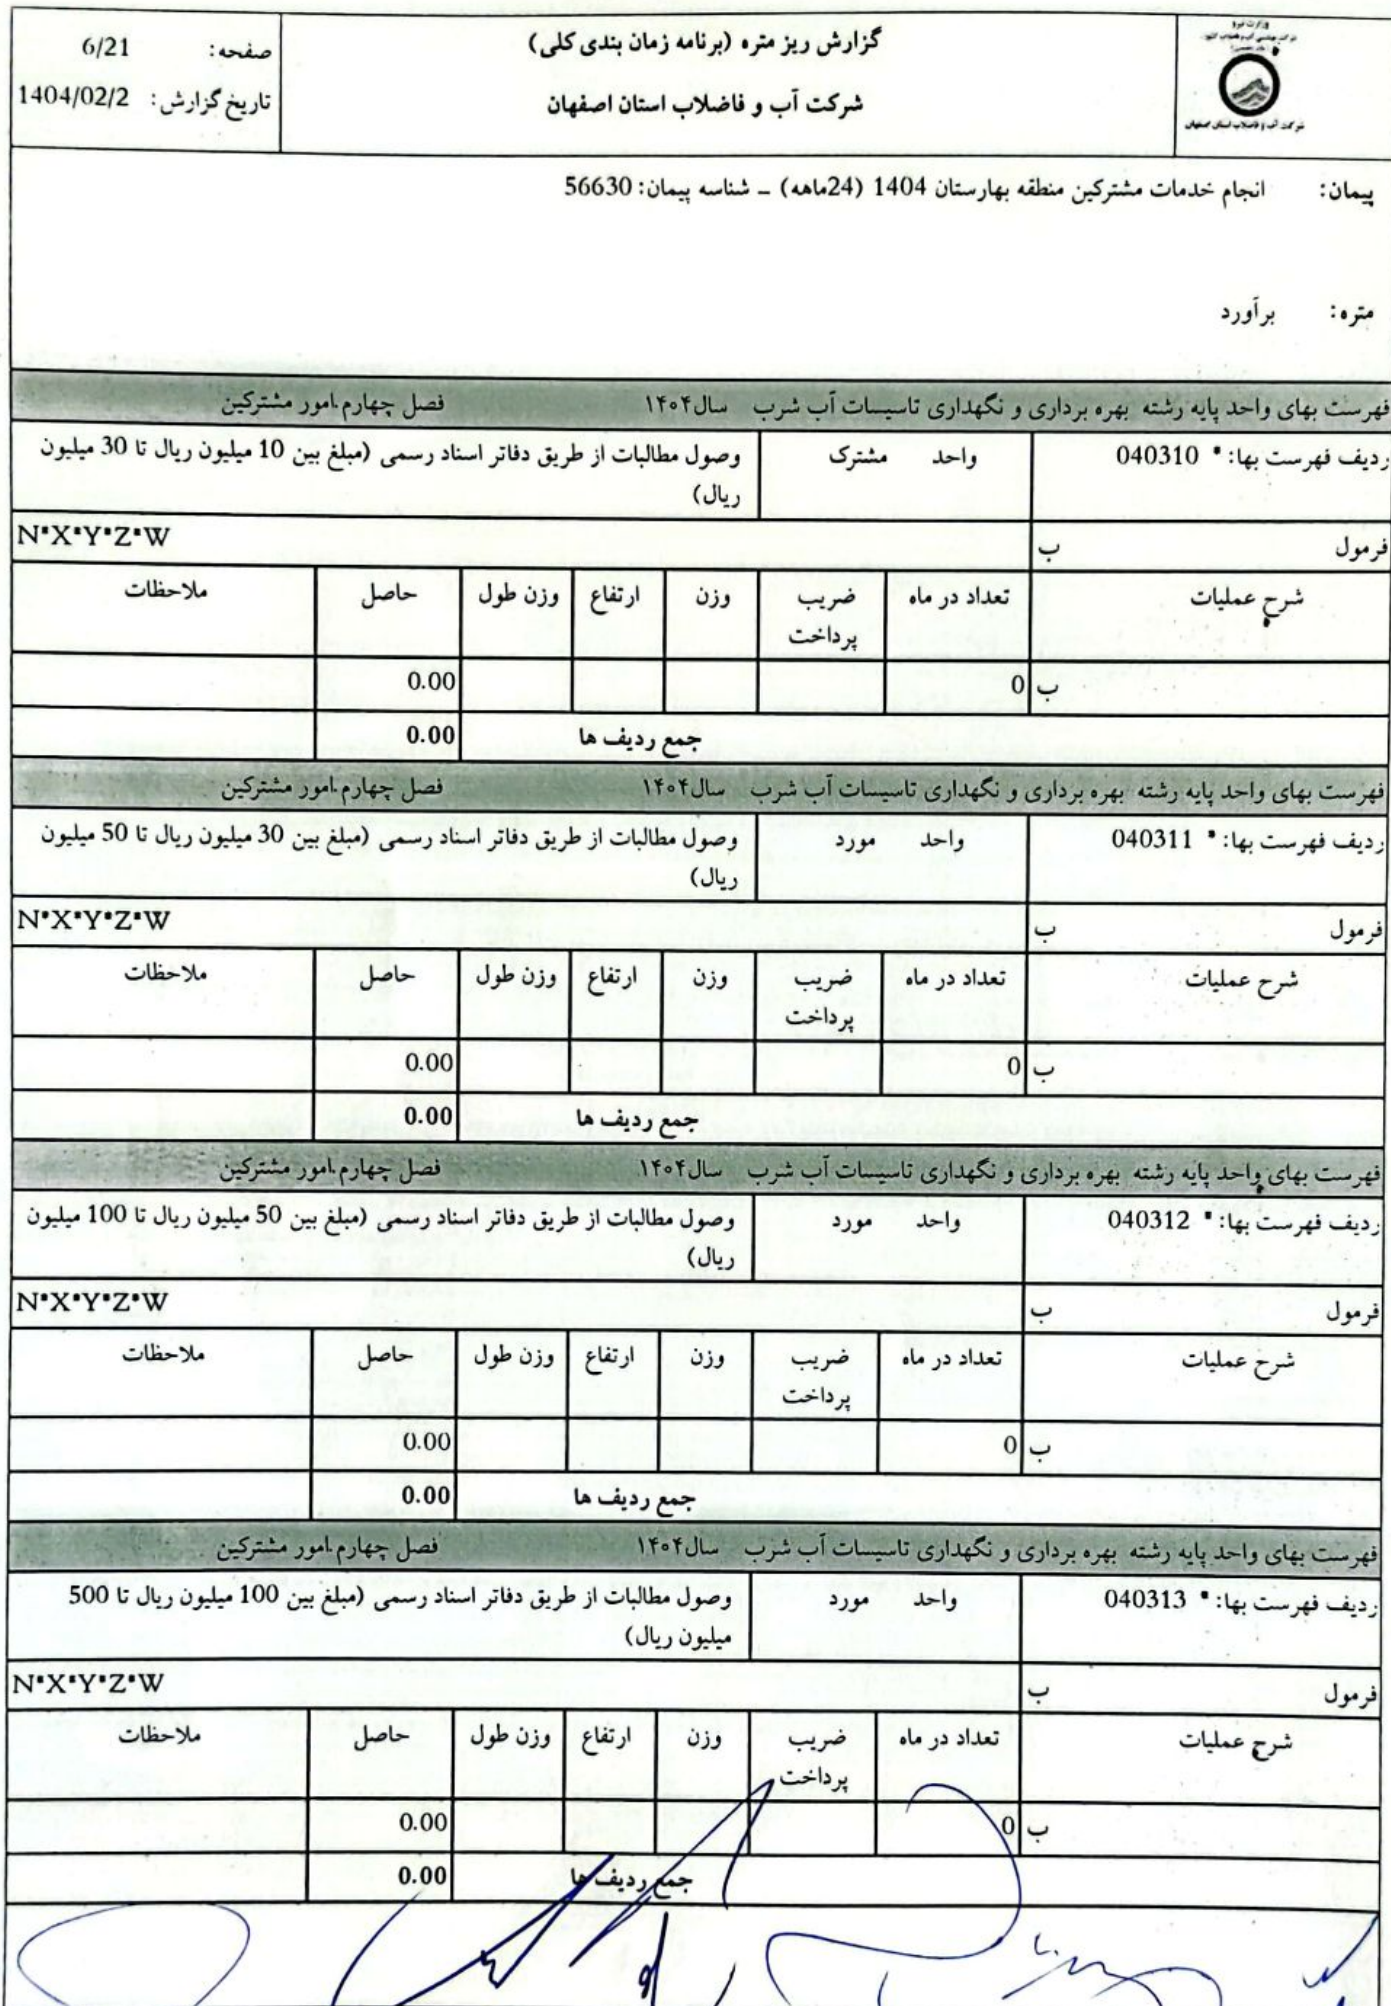 وزارت نیرو
شرکت آب و فاضلاب استان اصفهان
گزارش ریز متره (برنامه زمان بندی کلی)
شرکت آب و فاضلاب استان اصفهان
صفحه: 6/21
تاریخ گزارش: 1404/02/2
پیمان: انجام خدمات مشترکین منطقه بهارستان 1404 (24ماهه) - شناسه پیمان: 56630
متره: برآورد
فهرست بهای واحد پایه رشته بهره برداری و نگهداری تاسیسات آب شرب سال۱۴۰۴ فصل چهارم.امور مشترکین
ردیف فهرست بها: * 040310 واحد مشترک وصول مطالبات از طریق دفاتر اسناد رسمی (مبلغ بین 10 میلیون ریال تا 30 میلیون
ریال)
فرمول ب N*X*Y*Z*W
شرح عملیات تعداد در ماه ضریب وزن ارتفاع وزن طول حاصل ملاحظات
پرداخت
ب 0 0.00
جمع ردیف ها 0.00
فهرست بهای واحد پایه رشته بهره برداری و نگهداری تاسیسات آب شرب سال۱۴۰۴ فصل چهارم.امور مشترکین
ردیف فهرست بها: * 040311 واحد مورد وصول مطالبات از طریق دفاتر اسناد رسمی (مبلغ بین 30 میلیون ریال تا 50 میلیون
ریال)
فرمول ب N*X*Y*Z*W
شرح عملیات تعداد در ماه ضریب وزن ارتفاع وزن طول حاصل ملاحظات
پرداخت
ب 0 0.00
جمع ردیف ها 0.00
فهرست بهای واحد پایه رشته بهره برداری و نگهداری تاسیسات آب شرب سال۱۴۰۴ فصل چهارم.امور مشترکین
ردیف فهرست بها: * 040312 واحد مورد وصول مطالبات از طریق دفاتر اسناد رسمی (مبلغ بین 50 میلیون ریال تا 100 میلیون
ریال)
فرمول ب N*X*Y*Z*W
شرح عملیات تعداد در ماه ضریب وزن ارتفاع وزن طول حاصل ملاحظات
پرداخت
ب 0 0.00
جمع ردیف ها 0.00
فهرست بهای واحد پایه رشته بهره برداری و نگهداری تاسیسات آب شرب سال۱۴۰۴ فصل چهارم.امور مشترکین
ردیف فهرست بها: * 040313 واحد مورد وصول مطالبات از طریق دفاتر اسناد رسمی (مبلغ بین 100 میلیون ریال تا 500
میلیون ریال)
فرمول ب N*X*Y*Z*W
شرح عملیات تعداد در ماه ضریب وزن ارتفاع وزن طول حاصل ملاحظات
پرداخت
ب 0 0.00
جمع ردیف ها 0.00